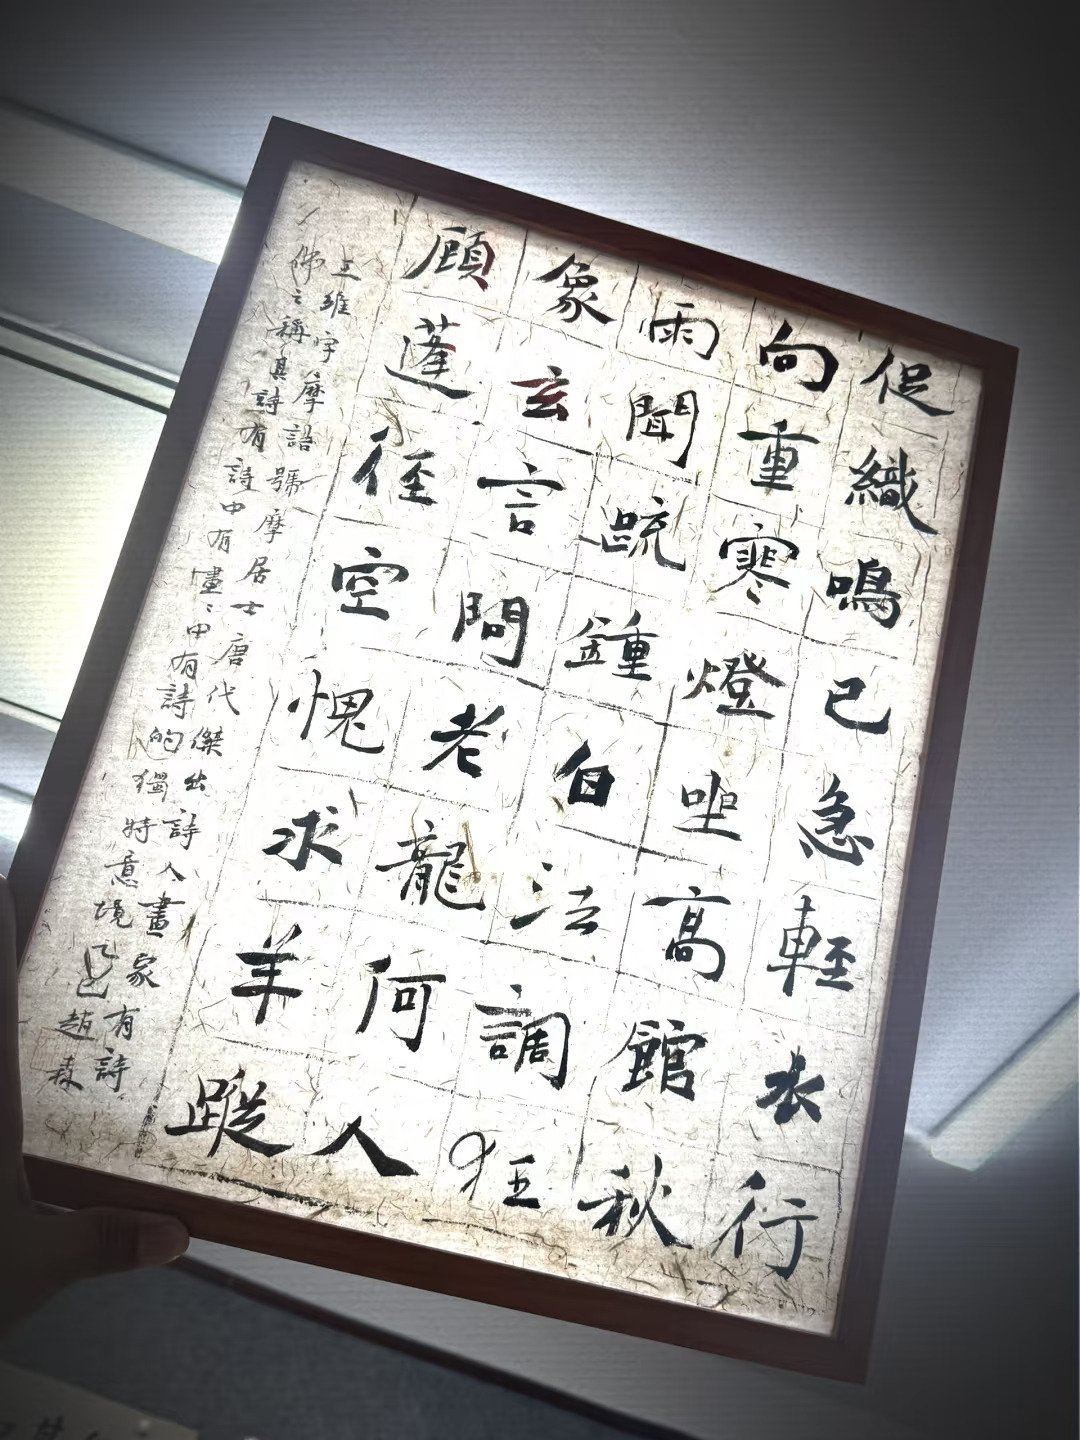 促織鳴已急輕衣行
向重寒燈坐高館秋
雨聞疏鍾白法調狂
象玄言問老龍何人
顧蓬徑空愧求羊蹤
王維字摩詰號摩居士唐代傑出詩人畫家有詩
佛之稱其詩有詩中有畫、中有詩的獨特意境 趙森